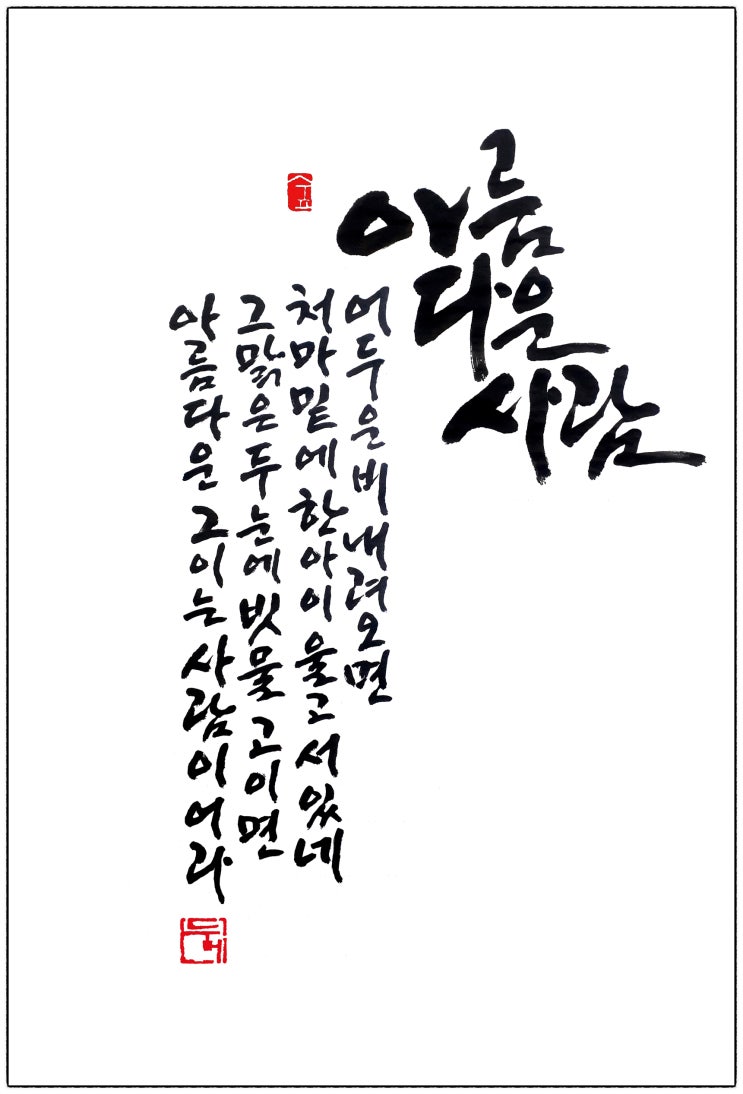 아름
다운
사람
어두운 비 내려오면
처마 밑에 한 아이 울고 서 있네
그 맑은 두 눈에 빗물 고이면
아름다운 그이는 사람이어라